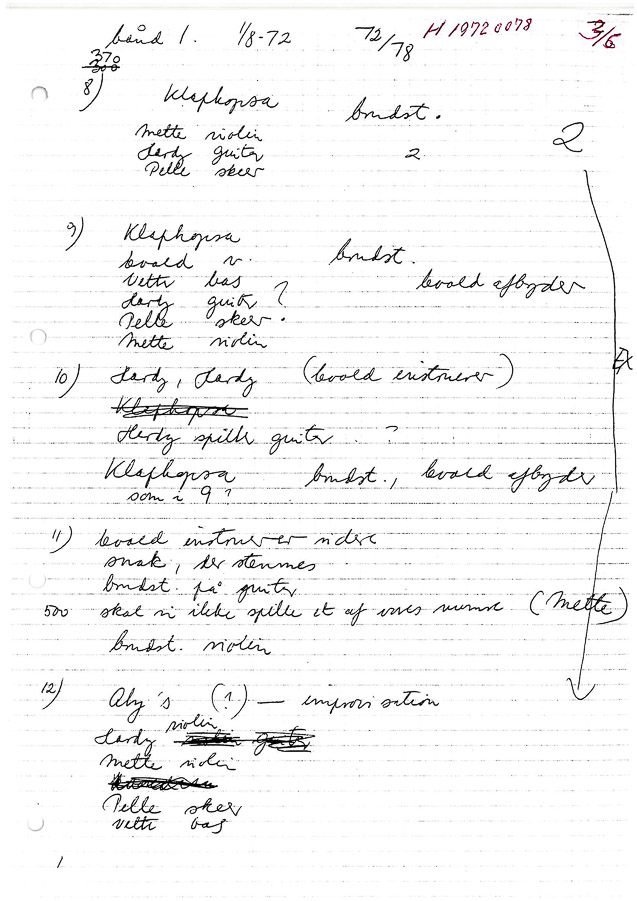 bånd 1. 1/8-72 72/78 H 19720078 3/6
370
300
8) Klaphopsa brudst. 2
Mette violin
Hardy guitar 2
Pelle skeer
9) Klaphopsa
Evald v. brudst.
Vette bas Evald afbryder
Hardy guitar ?
Pelle skeer.
Mette violin
EX
10) Hardy, Hardy (Evald instruerer)
Klaphopsa
Hardy spiller guitar . ?
Klaphopsa brudst., Evald afbryder
som i 9?
11) Evald instruerer videre
snak, der stemmes
brudst. på guitar
500 skal vi ikke spille et af vores numre (Mette)
brudst. violin
12) Aby's (?) — improvisation
violin
Hardy
Mette violin
Pelle skeer
Vette bas
1